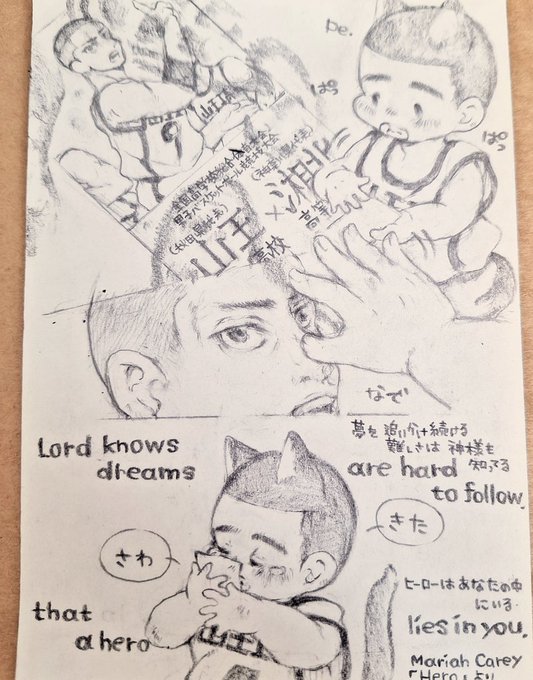 pe.
ぱっ
ぱっ
山王
9
全国高等学校総合体育大会
男子バスケットボール競技大会
(秋田県代表)
山王
高校
×
湘北
高等
なで
Lord knows
dreams
夢を追いかけ続ける
難しさは神様も
知ってる
are hard
to follow.
さわ
きた
that
a hero
ヒーローはあなたの中
にいる.
lies in you.
Mariah Carey
「Hero」より